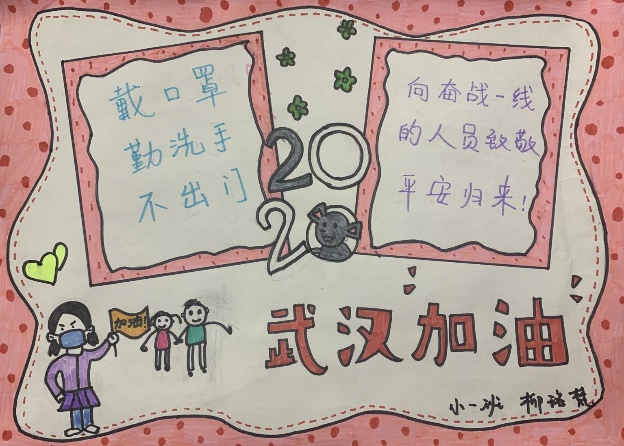 戴口罩
勤洗手
不出门
向奋战一线
的人员致敬
平安归来!
2020
加油!
武汉加油
小一班 柳